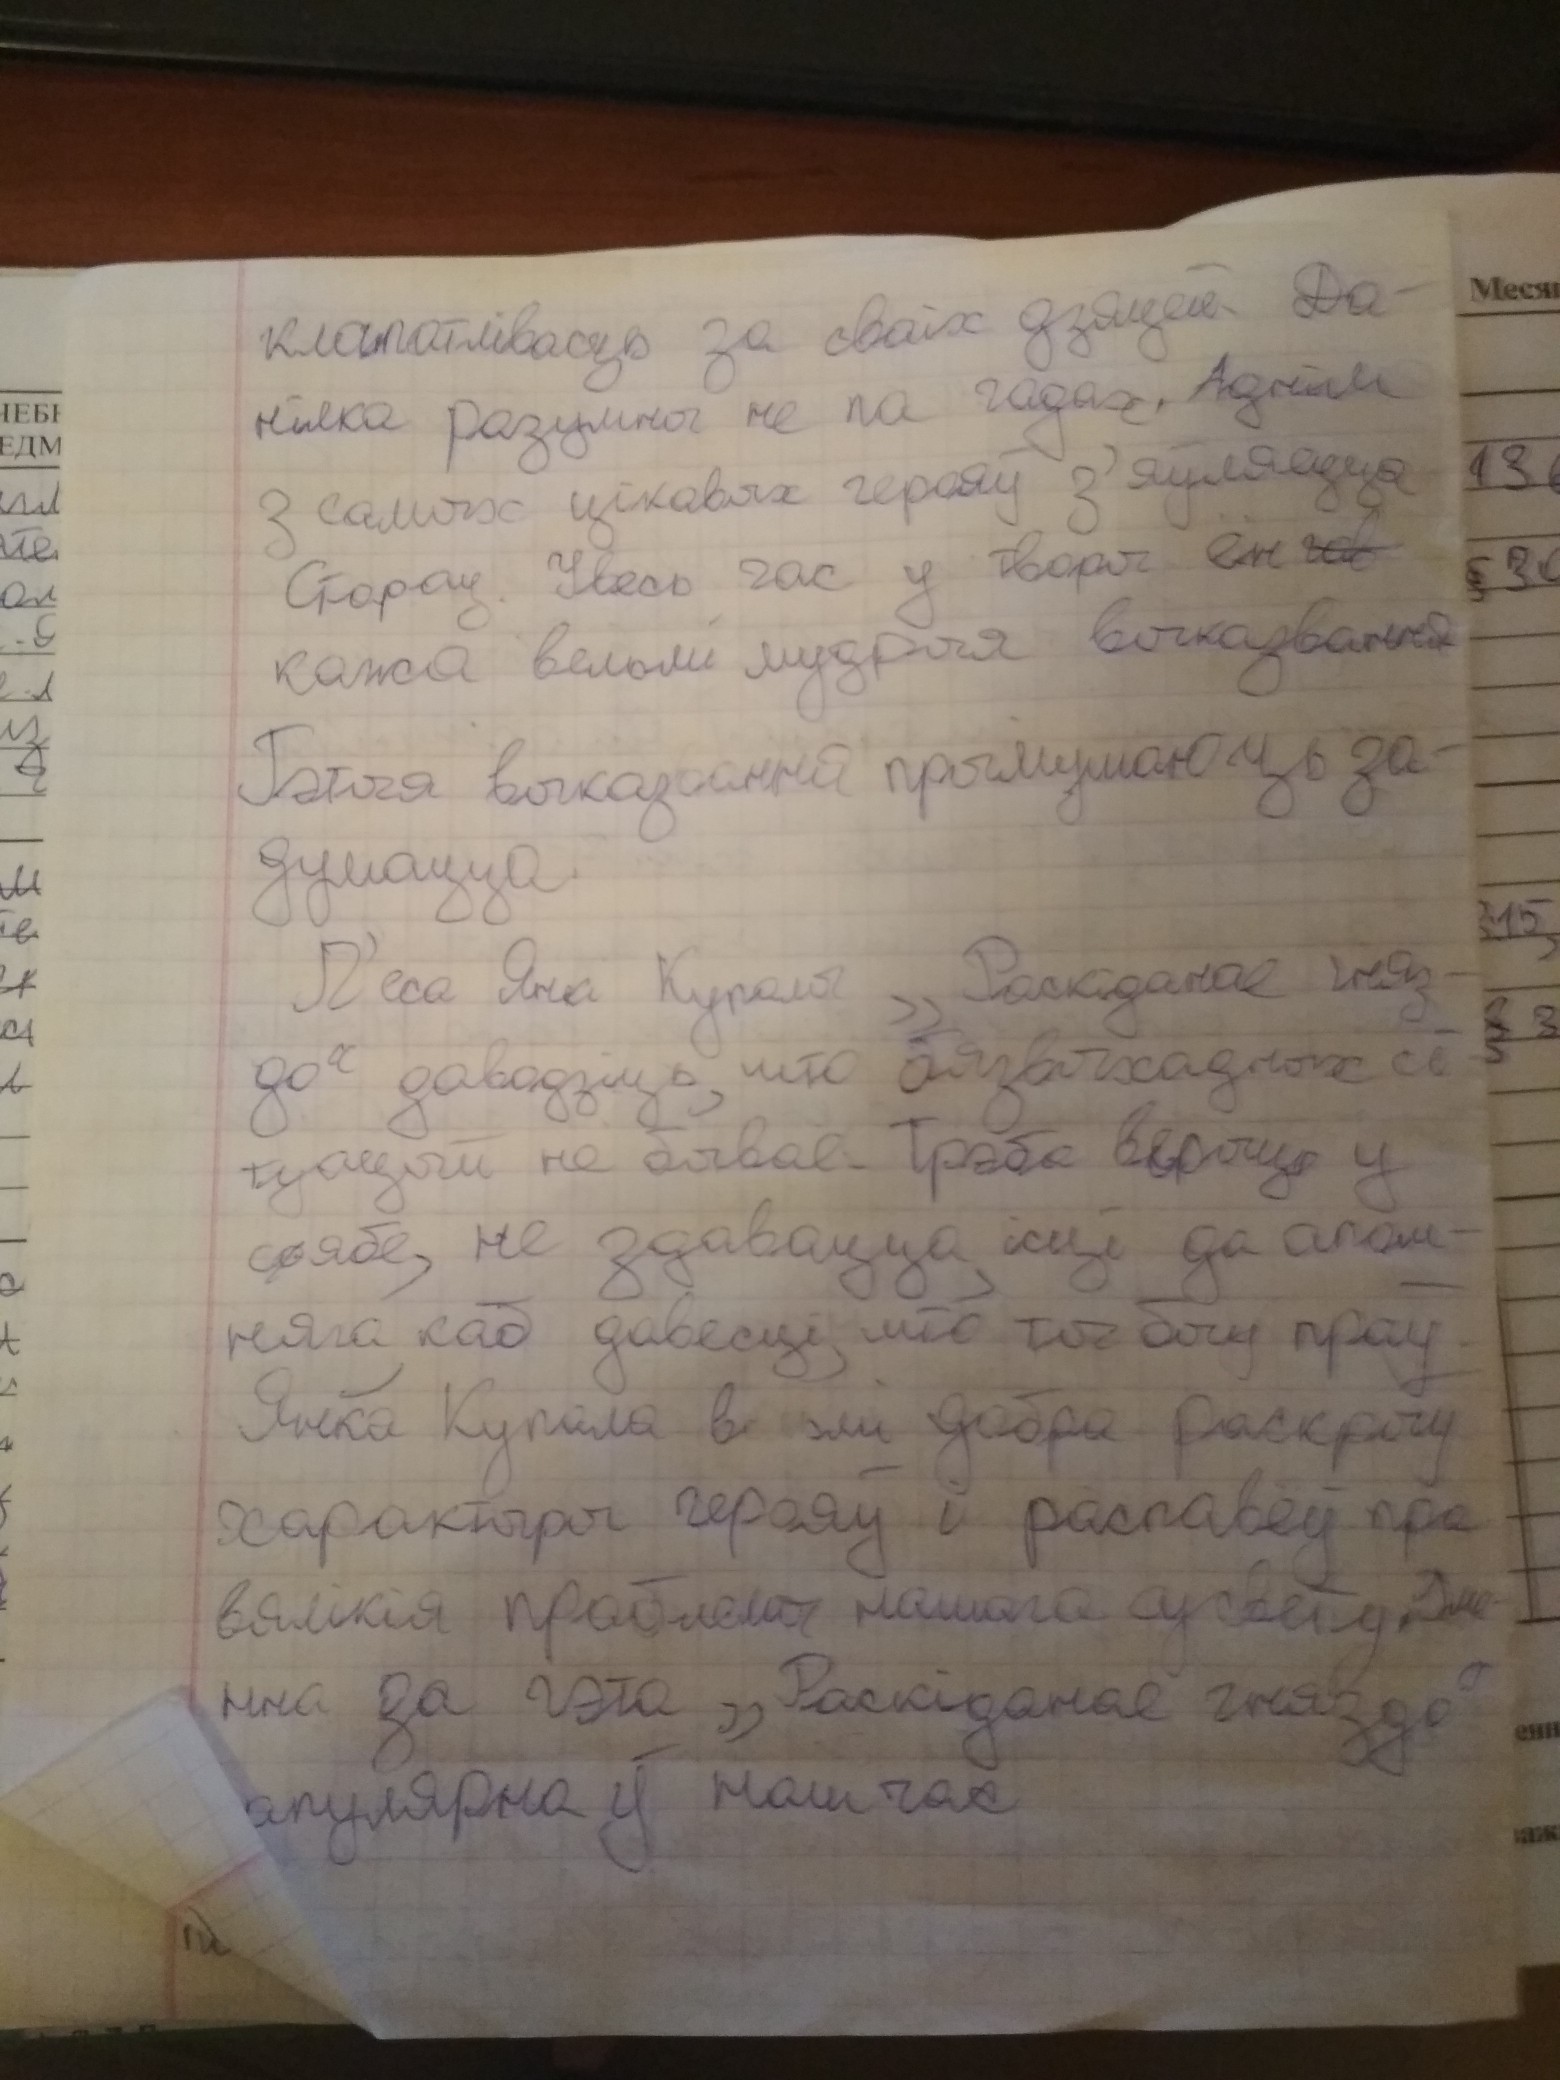 клапатлівасць за сваіх дзяцей. Да-
нілка разумны не па гадах. Адным
з самых цікавых герояў з'яўляецца
Старац. Увесь час у творы ён
кажа вельмі мудрыя выказванні
Гэтыя выказванні прымушаюць за-
думацца.
П'еса Янкі Купалы „Раскіданае гняз-
до“ даводзіць, што бязвыхадных сі-
туацый не бывае. Трэба верыць у
сябе, не здавацца, ісці да апош-
няга каб давесці, што ты быў праў
Янка Купала вельмі добра раскрыў
характыры герояў і распавёў пра
вялікія праблемы нашага сусвету. Іме-
нна за гэта „Раскіданае гняздо“
апулярна ў наш час
Меся
ЧЕБН
ЕДМ
136
§30
315,